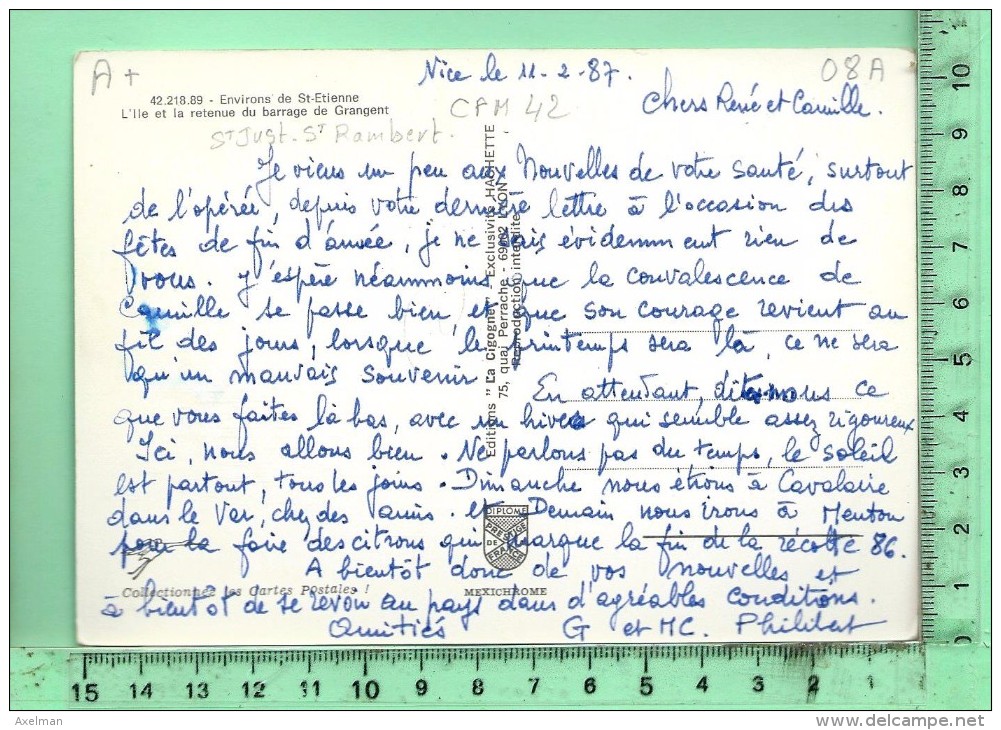 A+
Nice le 11-2-87.
08A
42.218.89 - Environs de St-Etienne
L'Ile et la retenue du barrage de Grangent
CPM 42
St Just. St Rambert.
Chers René et Camille.
Je viens un peu aux Nouvelles de votre santé, surtout
de l'opérée, depuis votre dernière lettre à l'occasion des
fêtes de fin d'année, je ne sais évidemment rien de
vous. J'espère néammoins que la convalescence de
Camille se passe bien, et que son courage revient au
fil des jours, lorsque le printemps sera là, ce ne sera
qu'un mauvais souvenir. En attendant, dites nous ce
que vous faites là bas, avec un hiver qui semble assez rigoureux
Ici, nous allons bien. Ne parlons pas du temps, le soleil
est partout, tous les jours. Dimanche nous étions à Cavalaire
dans le Var, chez des amis. et Demain nous irons à Menton
pour la foire des citrons qui marque la fin de la récolte 86.
A bientôt donc de vos nouvelles et
à bientôt de se revoir au pays dans d'agréables conditions.
Amitiés G et MC. Philibert
Editions "La Cigogne" - Exclusivité HACHETTE
75, quai Perrache - 69002 LYON
Reproduction interdite
DIPLOME
PRESTIGE
DE
FRANCE
Collectionnez les Cartes Postales !
MEXICHROME
10
9
8
7
6
5
4
3
2
1
0
15 14 13 12 11 10 9 8 7 6 5 4 3 2 1
Axelman
delcampe.net